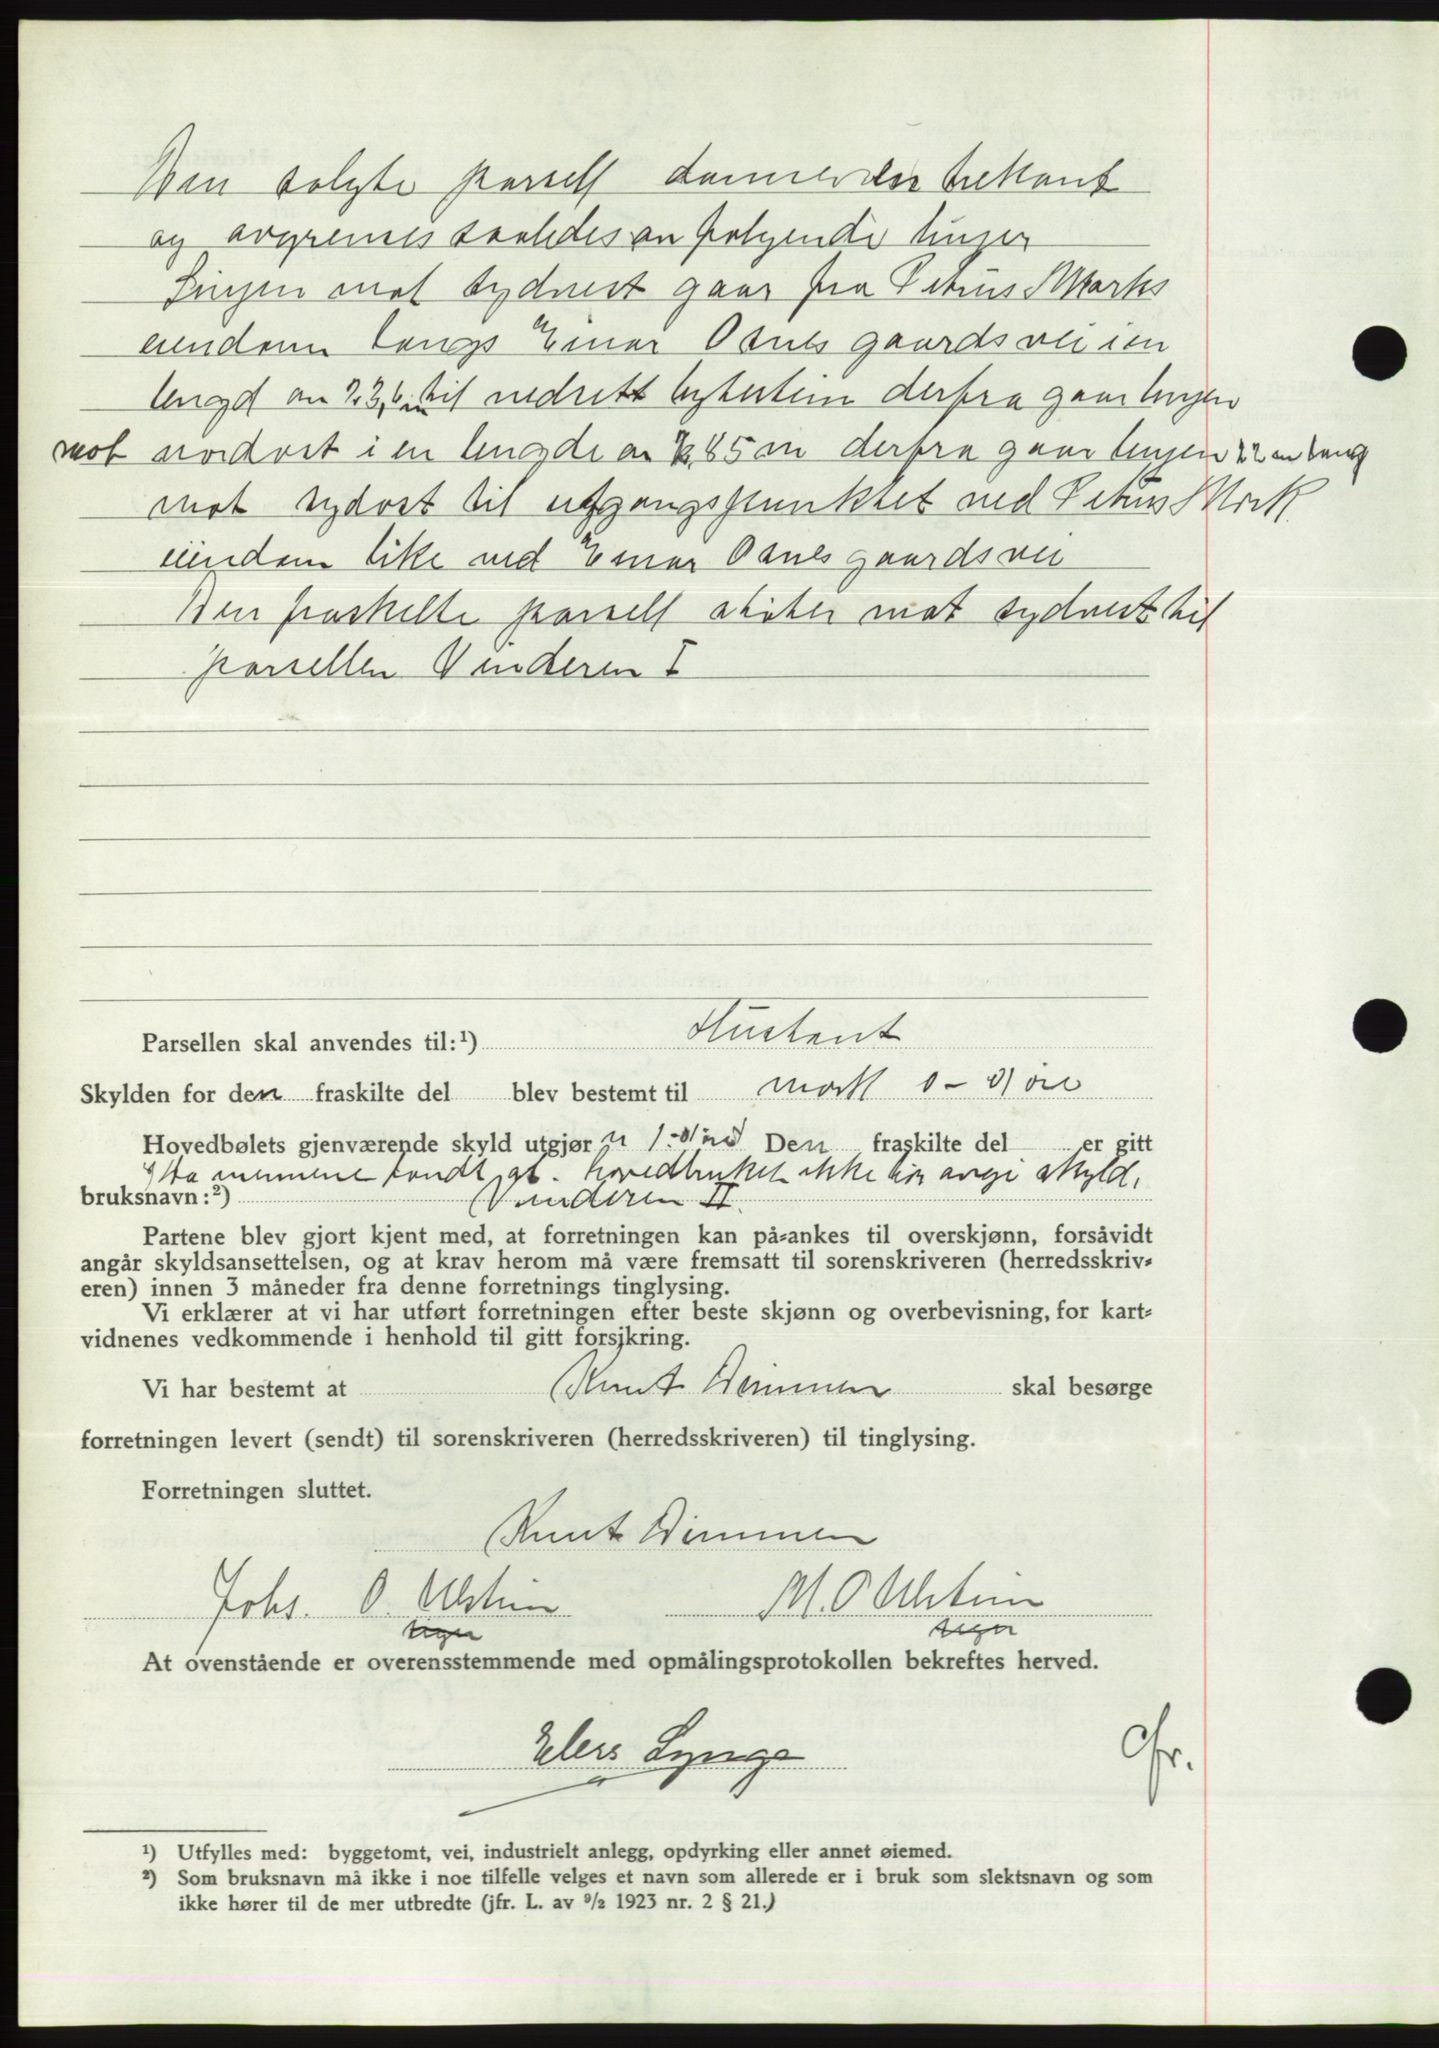 Den solgte parsell danner en trekant
og avgrenses saaledes av følgende linjer
Linjen mot sydvest gaar fra Petrus Mørks
eiendom langs Einar Osnes gaardsvei i en
lengd av 23,6 m til nedsett bytestein derfra gaar linjen
mot nordost i en lengde av 85 m derfra gaar linjen 22 m lang
mot sydost til utgangspunktet ved Petrus Mørk
eiendom like ved Einar Osnes gaardsvei
Den fraskilte parsell støter mot sydvest til
parsellen Vinderen I
Parsellen skal anvendes til:¹) Hustomt
Skylden for den fraskilte del blev bestemt til mark 0 - 01 øre
Hovedbølets gjenværende skyld utgjør Den fraskilte del er gitt
mennene fandt at hovedbruket ikke bør avgi skyld.
bruksnavn:²) Vinderen II.
Partene blev gjort kjent med, at forretningen kan på-ankes til overskjønn, forsåvidt
angår skyldsansettelsen, og at krav herom må være fremsatt til sorenskriveren (herredsskriv-
eren) innen 3 måneder fra denne forretnings tinglysing.
Vi erklærer at vi har utført forretningen efter beste skjønn og overbevisning, for kart-
vidnenes vedkommende i henhold til gitt forsikring.
Vi har bestemt at Knut Dimmen skal besørge
forretningen levert (sendt) til sorenskriveren (herredsskriveren) til tinglysing.
Forretningen sluttet.
Knut Dimmen
Johs. O. Ulstein M. O Ulstein
At ovenstående er overensstemmende med opmålingsprotokollen bekreftes herved.
Elers Lynge
cfr.
¹) Utfylles med: byggetomt, vei, industrielt anlegg, opdyrking eller annet øiemed.
²) Som bruksnavn må ikke i noe tilfelle velges et navn som allerede er i bruk som slektsnavn og som
ikke hører til de mer utbredte (jfr. L. av ⁹/₂ 1923 nr. 2 § 21.)